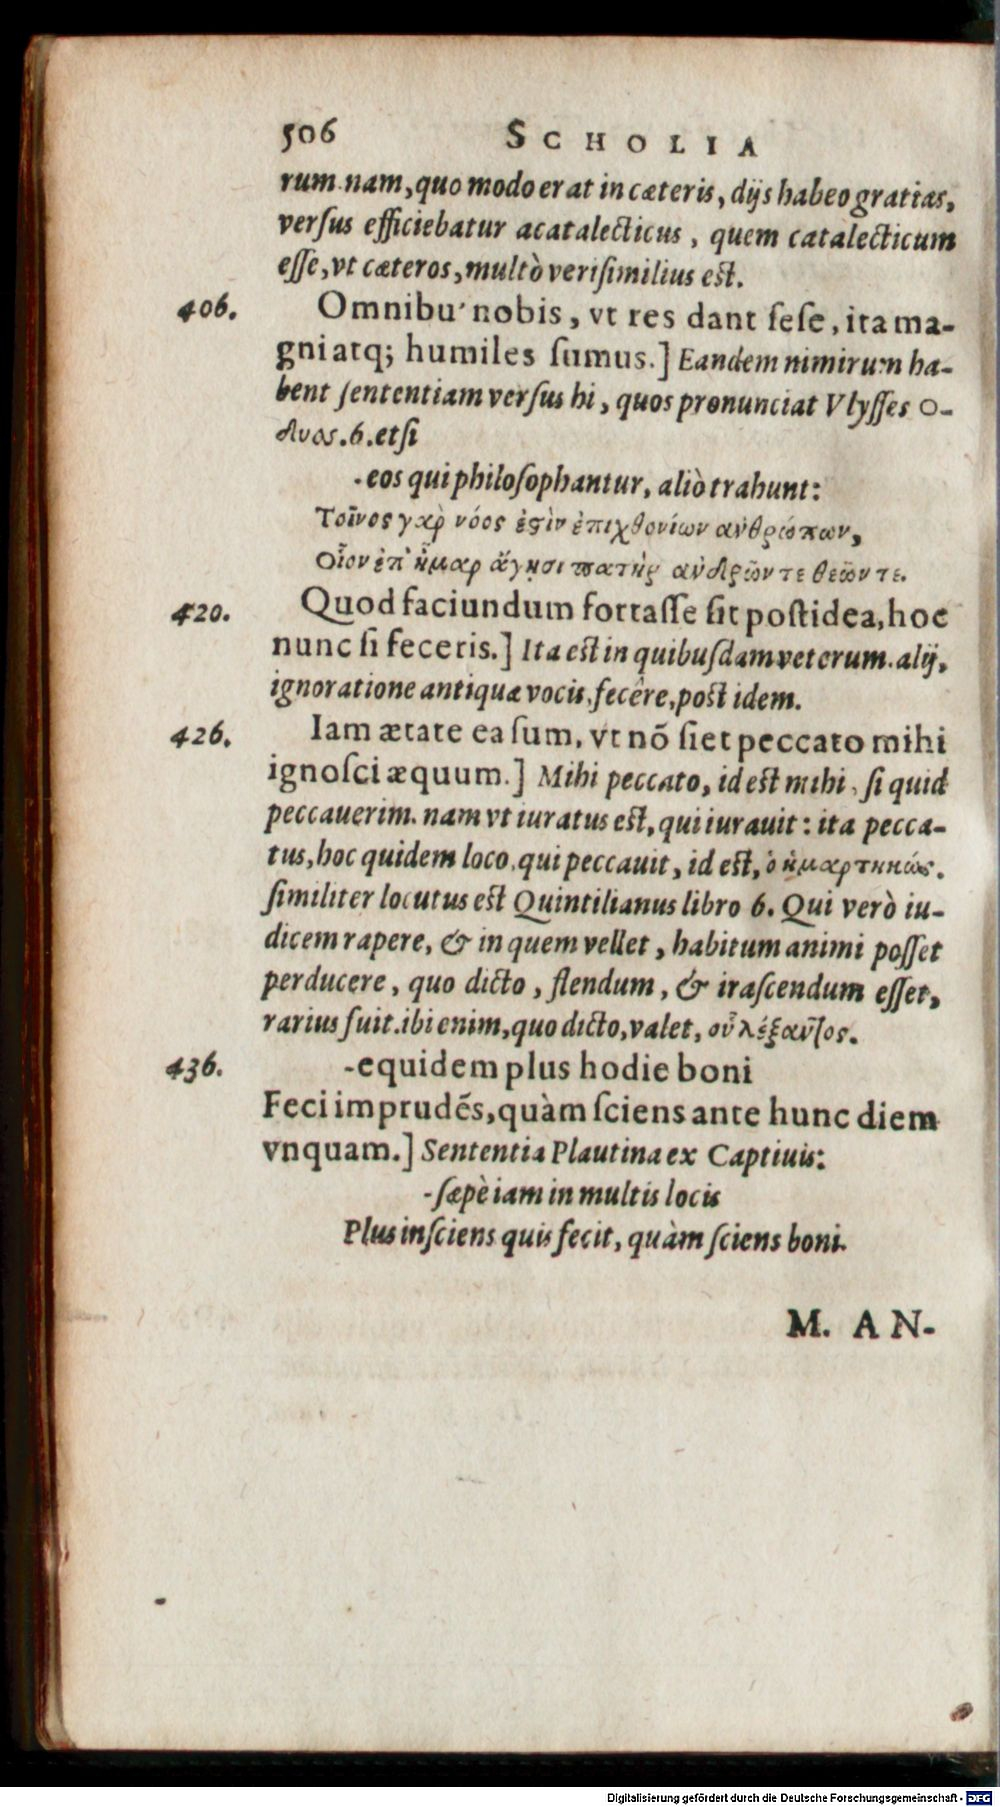 506 SCHOLIA
rum. nam, quo modo erat in cæteris, dijs habeo gratias,
verſus efficiebatur acatalecticus, quem catalecticum
eſſe, vt cæteros, multò veriſimilius eſt.
406. Omnibu' nobis, vt res dant ſeſe, ita ma-
gni atq; humiles ſumus.] Eandem nimirum ha-
bent ſententiam verſus hi, quos pronunciat Vlyſſes Ο-
δυσ. 6. etſi
-eos qui philoſophantur, aliò trahunt:
Τοῖος γὰρ νόος ἐϛὶν ἐπιχθονίων ἀνθρώπων,
Οἷον ἐπ' ἦμαρ ἄγησι πατὴρ ἀνδρῶν τε θεῶν τε.
420. Quod faciundum fortaſſe ſit poſtidea, hoc
nunc ſi feceris.] Ita eſt in quibuſdam veterum. alij,
ignoratione antiquæ vocis, fecêre, poſt idem.
426. Iam ætate ea ſum, vt nō ſiet peccato mihi
ignoſci æquum.] Mihi peccato, id eſt mihi, ſi quid
peccauerim. nam vt iuratus eſt, qui iurauit: ita pecca-
tus, hoc quidem loco, qui peccauit, id eſt, ὁ ἡμαρτηκώς.
ſimiliter locutus eſt Quintilianus libro 6. Qui verò iu-
dicem rapere, & in quem vellet, habitum animi poſſet
perducere, quo dicto, flendum, & iraſcendum eſſet,
rarius fuit. ibi enim, quo dicto, valet, οὗ λέξαντος.
436. -equidem plus hodie boni
Feci imprudēs, quàm ſciens ante hunc diem
vnquam.] Sententia Plautina ex Captiuis:
-ſæpè iam in multis locis
Plus inſciens quis fecit, quàm ſciens boni.
M. AN-
Digitalisierung gefördert durch die Deutsche Forschungsgemeinschaft - DFG